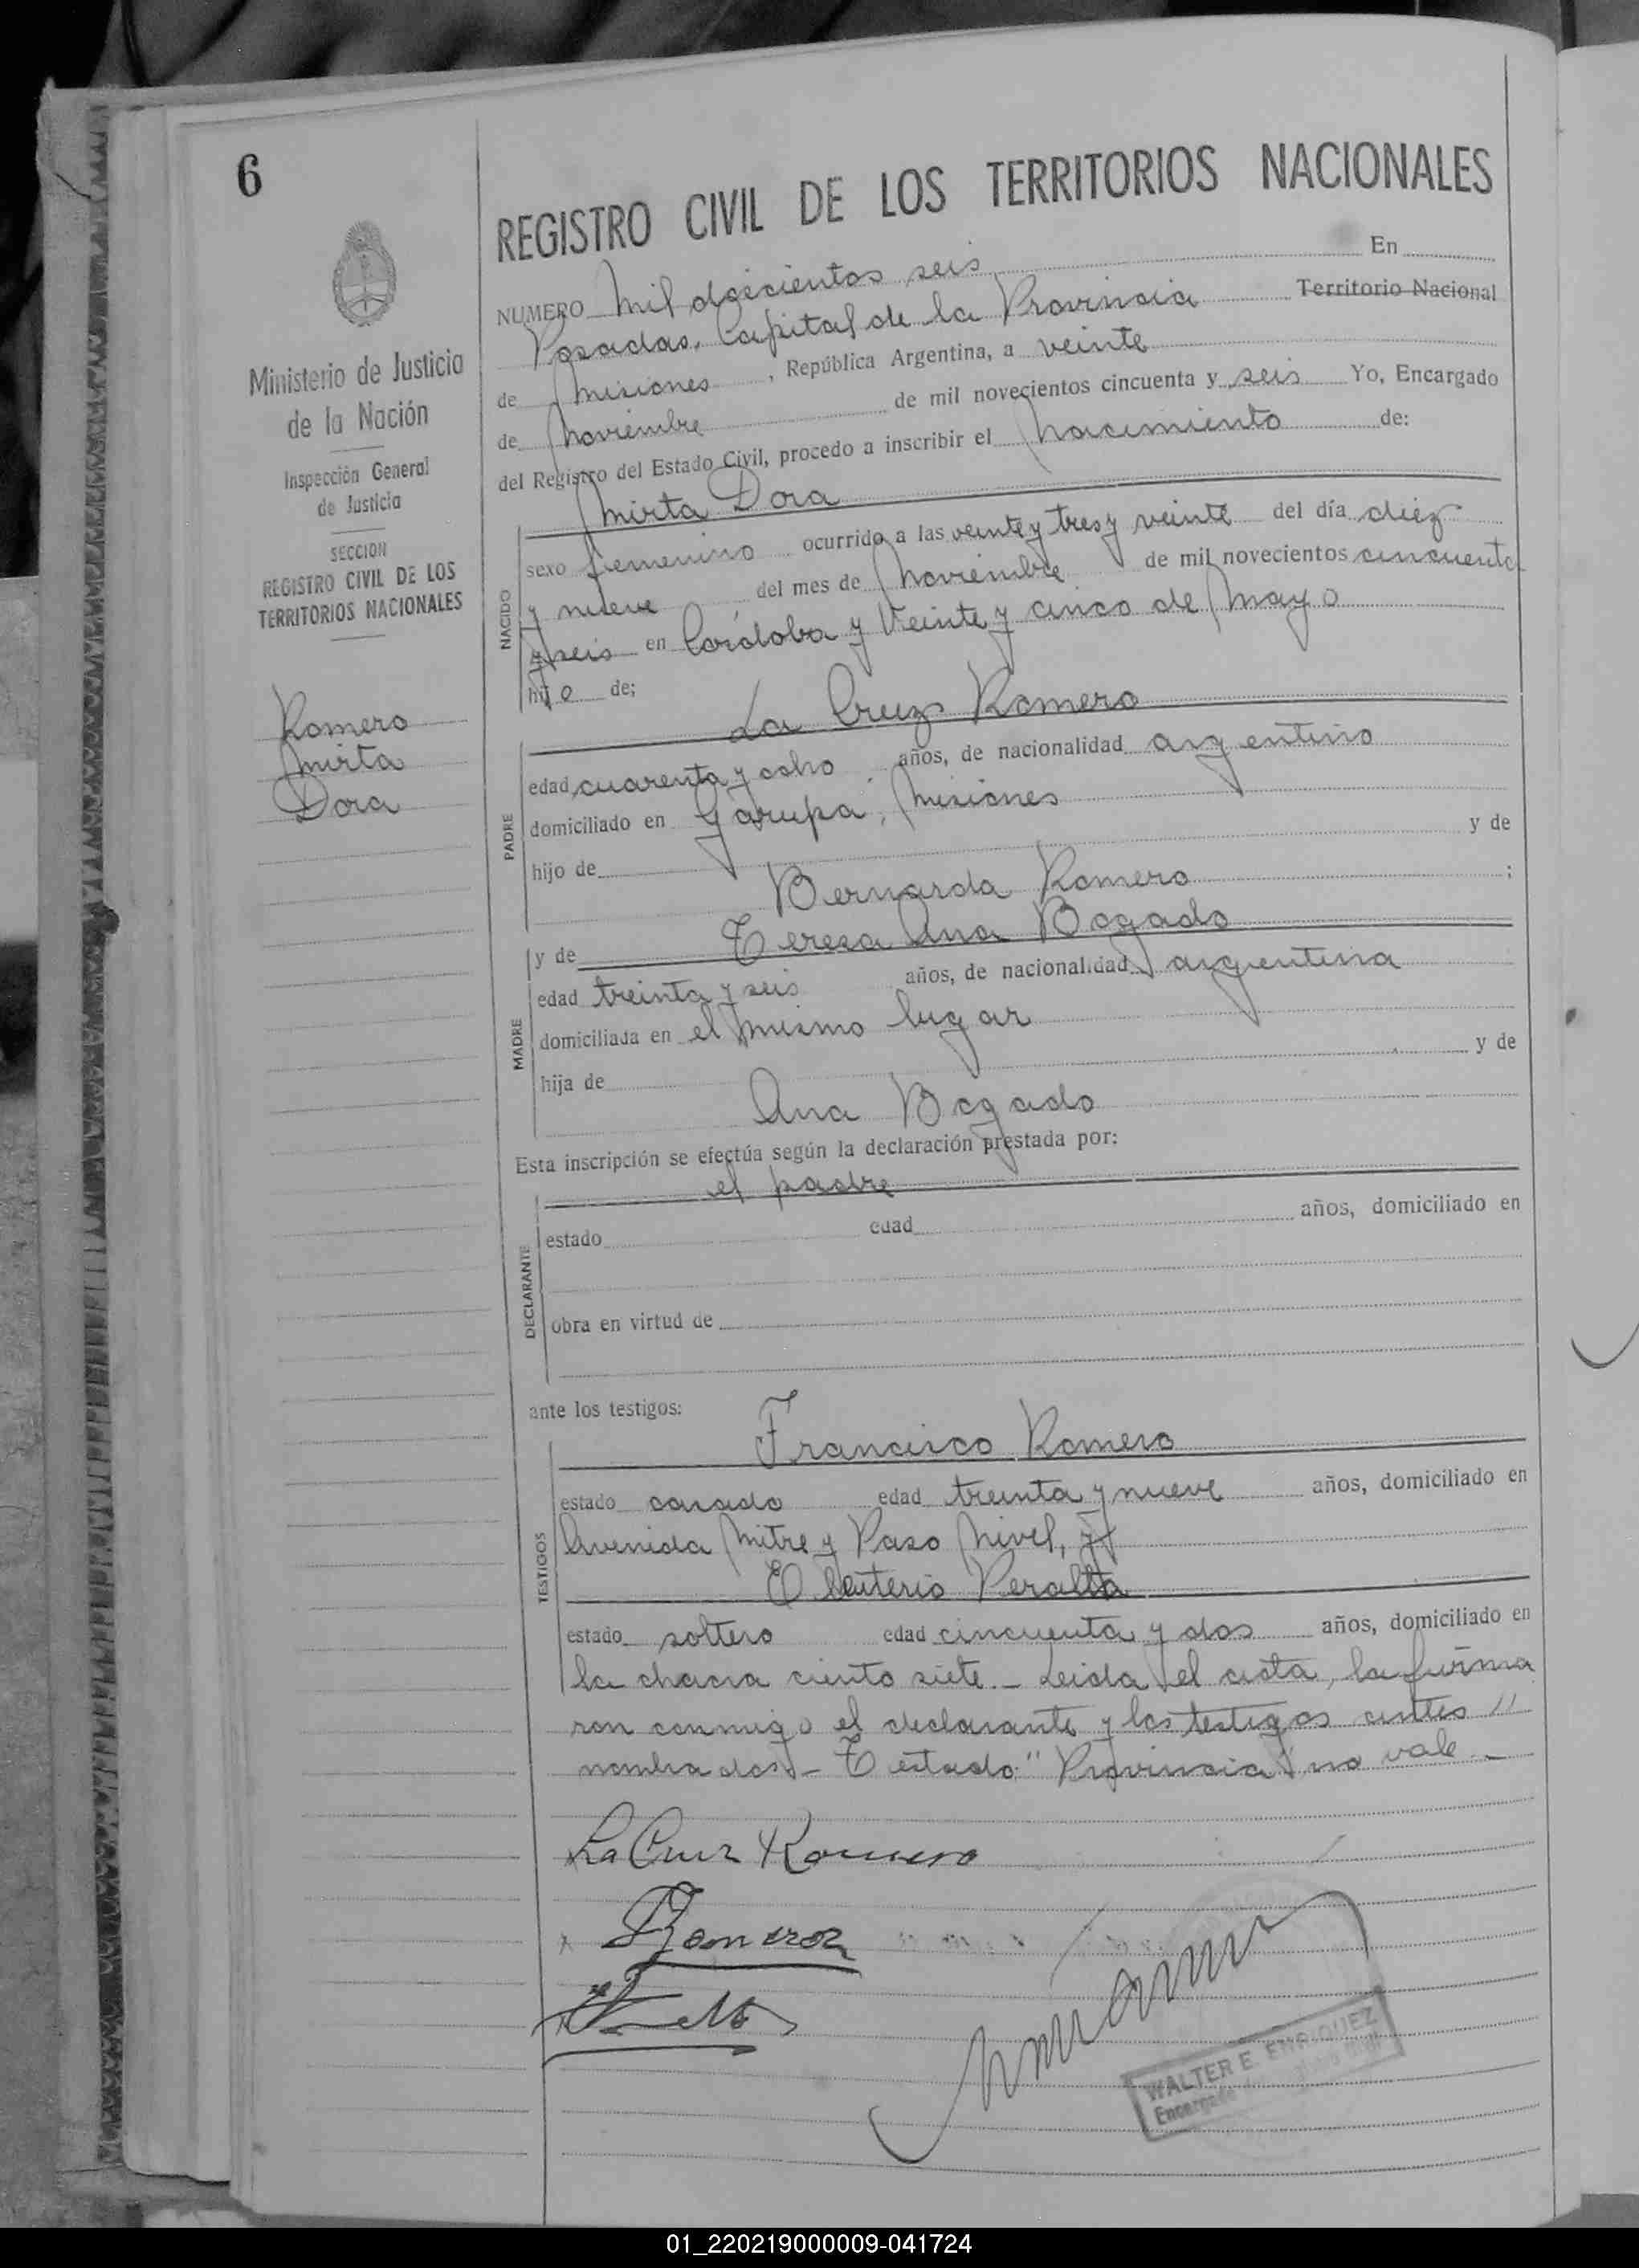 6
Ministerio de Justicia
de la Nación
Inspección General
de Justicia
SECCION
REGISTRO CIVIL DE LOS
TERRITORIOS NACIONALES
Romero
Mirta
Dora
REGISTRO CIVIL DE LOS TERRITORIOS NACIONALES
NUMERO Mil doscientos seis En
Posadas, Capital de la Provincia Territorio Nacional
de Misiones, República Argentina, a veinte
de Noviembre de mil novecientos cincuenta y seis Yo, Encargado
del Registro del Estado Civil, procedo a inscribir el Nacimiento de:
Mirta Dora
NACIDO
sexo femenino ocurrido a las veinte y tres y veinte del día diez
y nueve del mes de Noviembre de mil novecientos cincuenta
y seis en Córdoba y Veinte y cinco de Mayo
hijo de;
La Cruz Romero
PADRE
edad cuarenta y ocho años, de nacionalidad argentino
domiciliado en Garupa, Misiones
hijo de y de
Bernarda Romero ;
y de Teresa Ana Bogado
MADRE
edad treinta y seis años, de nacionalidad argentina
domiciliada en el mismo lugar
hija de y de
Ana Bogado
Esta inscripción se efectúa según la declaración prestada por:
el padre
DECLARANTE
estado edad años, domiciliado en
obra en virtud de
ante los testigos:
Francisco Romero
TESTIGOS
estado casado edad treinta y nueve años, domiciliado en
Avenida Mitre y Paso Nivel, y
Eleuterio Peralta
estado soltero edad cincuenta y dos años, domiciliado en
la chacra ciento siete.- Leida el acta, la firma
ron conmigo el declarante y los testigos antes //
nombrados.- Testado: "Provincia" no vale.-
La Cruz Romero
WALTER E. ENRIQUEZ
Encargado
01_220219000009-041724